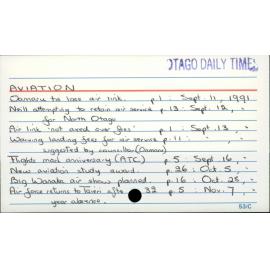 OTAGO DAILY TIMES
AVIATION
Oamaru to lose air link. p.1 : Sept. 11, 1991
Neill attempting to retain air service p.13 : Sept. 12, "
for North Otago
Air link 'not axed over fees' p.1 : Sept. 13, "
Waiving landing fees for air service p.11 : "
suggested by councillor (Oamaru)
Flights mark anniversary (ATC) p.5 : Sept. 16, "
New aviation study award. p.26 : Oct. 5, "
Big Wanaka air show planned. p.16 : Oct. 25, "
Air force returns to Taieri after 32 p.5 : Nov. 7, "
year absence.
63/C